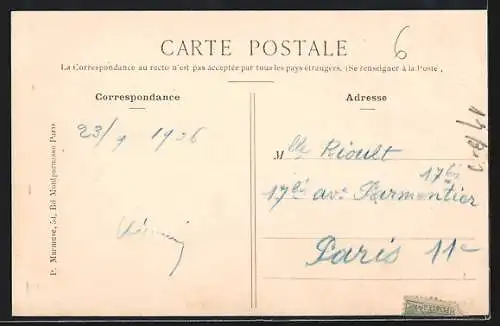 6
CARTE POSTALE
La Correspondance au recto n'est pas acceptée par tous les pays étrangers. (Se renseigner à la Poste.
Correspondance
Adresse
23/9 1906
Mlle Rioult
17bis
17bis ave Parmentier
Paris 11e
P. Marmuse, 54, Bd Montparnasse Paris